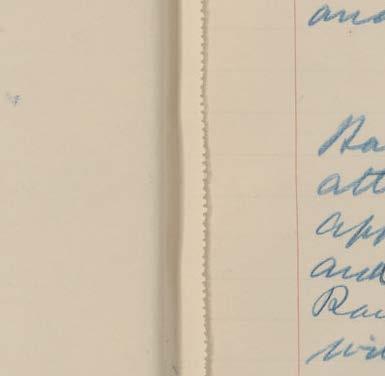 and
Ha
att
app
and
Rau
wi